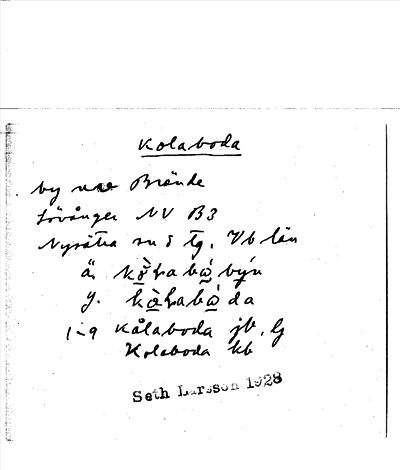 Kolaboda
by Brände
Lövånger NV B3
Nysätra sn S tg. Vb län
ä. býn
y. da
1-9 Kålaboda jb, lj
Kolaboda kb
Seth Larsson 1928